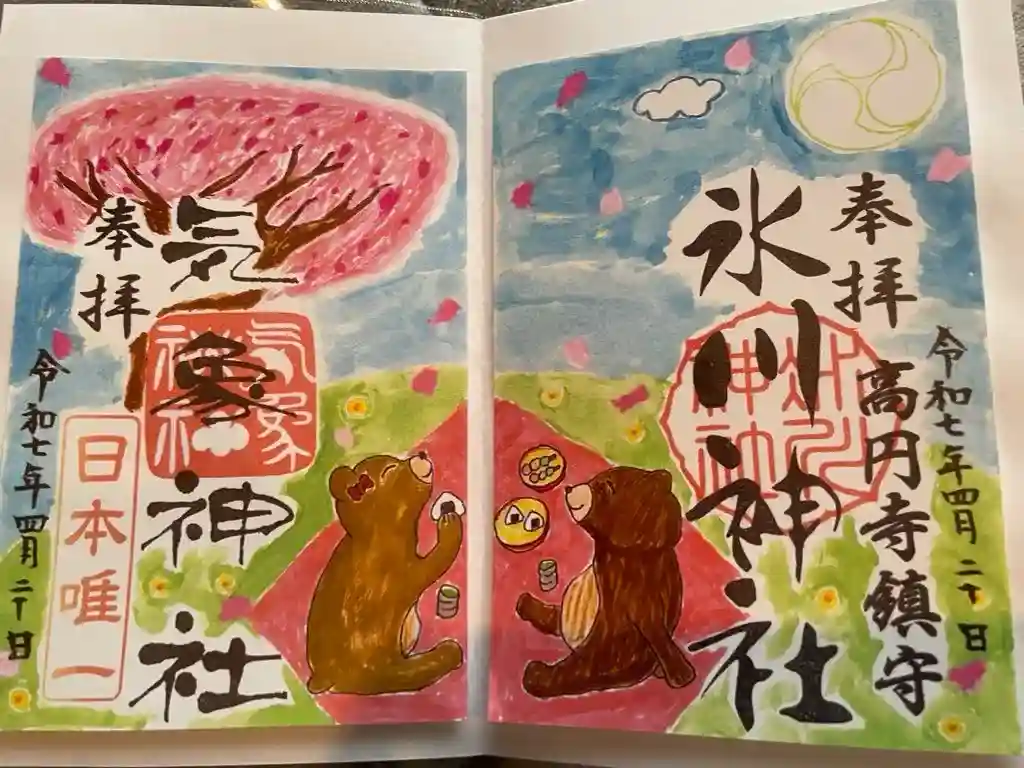 奉拝
氷川神社
高円寺鎮守
令和七年四月二十日
奉拝
気象神社
気象神社
日本唯一
令和七年四月二十日